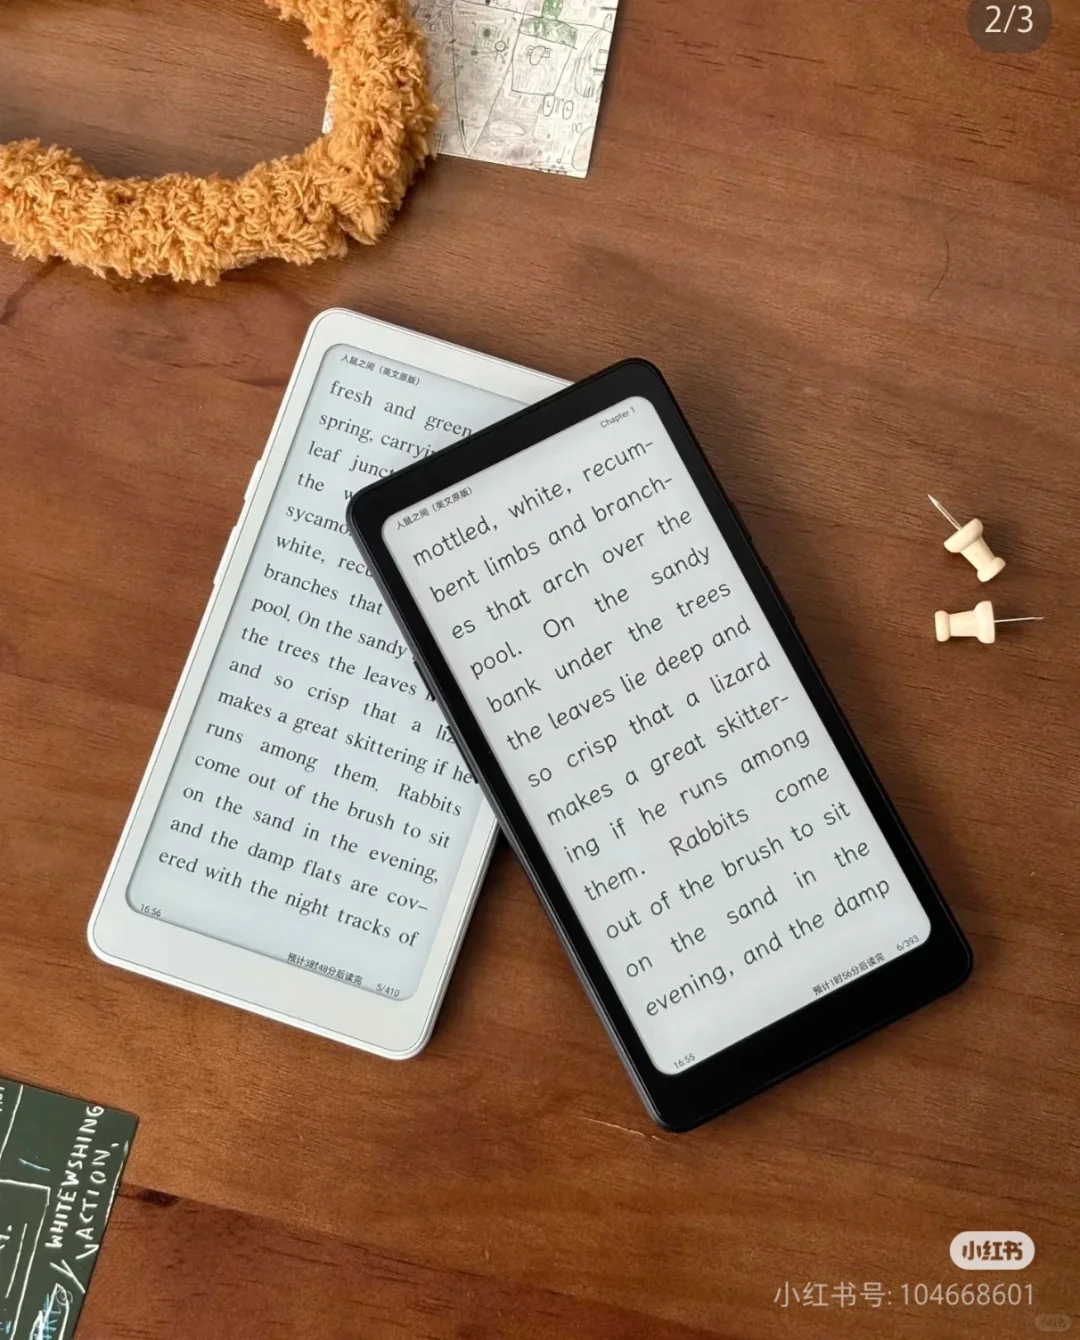 2/3
人鼠之间（英文原版）
fresh and green
spring, carryin
leaf junct
the w
sycamo
white, recu
branches that
pool. On the sandy
the trees the leaves
and so crisp that a liz
makes a great skittering if he
runs among them. Rabbits
come out of the brush to sit
on the sand in the evening,
and the damp flats are cov-
ered with the night tracks of
16:56
预计3时48分后读完
5/410
人鼠之间（英文原版）
Chapter 1
mottled, white, recum-
bent limbs and branch-
es that arch over the
pool. On the sandy
bank under the trees
the leaves lie deep and
so crisp that a lizard
makes a great skitter-
ing if he runs among
them. Rabbits come
out of the brush to sit
on the sand in the
evening, and the damp
16:55
预计1时56分后读完
6/393
WHITEWSHING
ACTION,
小红书
小红书号: 104668601